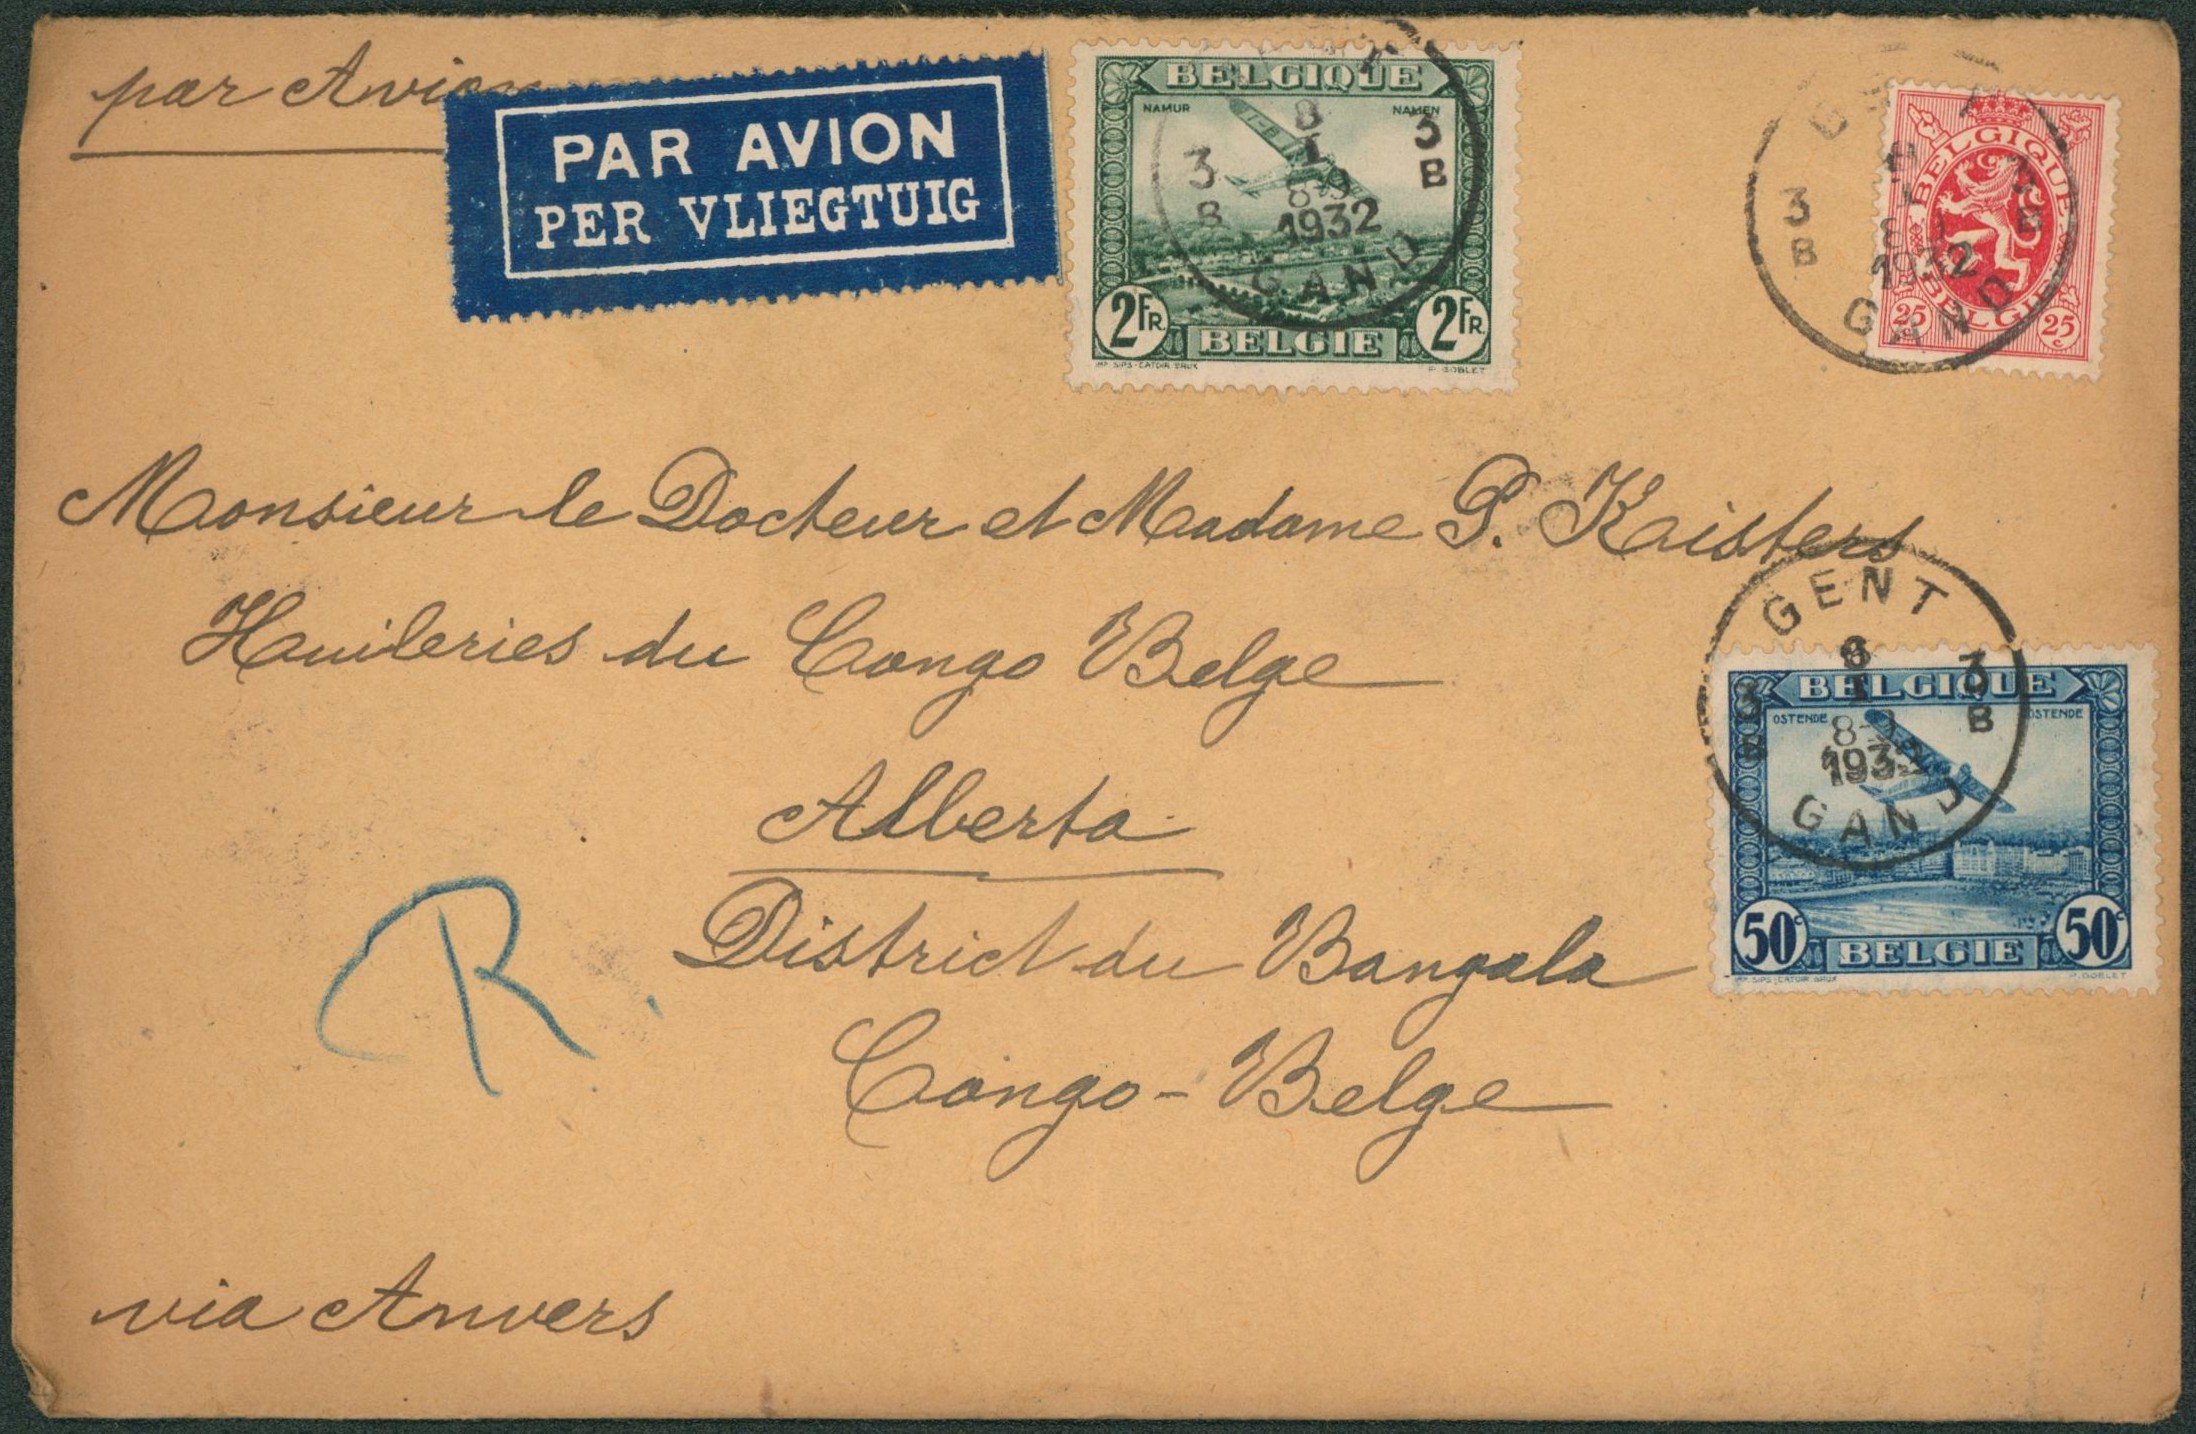 par Avion
PAR AVION
PER VLIEGTUIG
BELGIQUE
NAMUR NAMEN
2FR. 2FR.
BELGIE
IMP. SIPS-CATOIR BRUX P. GOBLET
3 B 8 I 8-9 1932 3 B
GAND
BELGIQUE
BELGIE
25c 25c
3 B 1932
GAND
Monsieur le Docteur et Madame P. Kaisters
Huileries du Congo Belge
Alberta
District du Bangala
Congo-Belge
R.
via Anvers
GENT
3 B 8 I 8-9 1932 3 B
GAND
BELGIQUE
OSTENDE OSTENDE
50c 50c
BELGIE
IMP. SIPS-CATOIR BRUX P. GOBLET